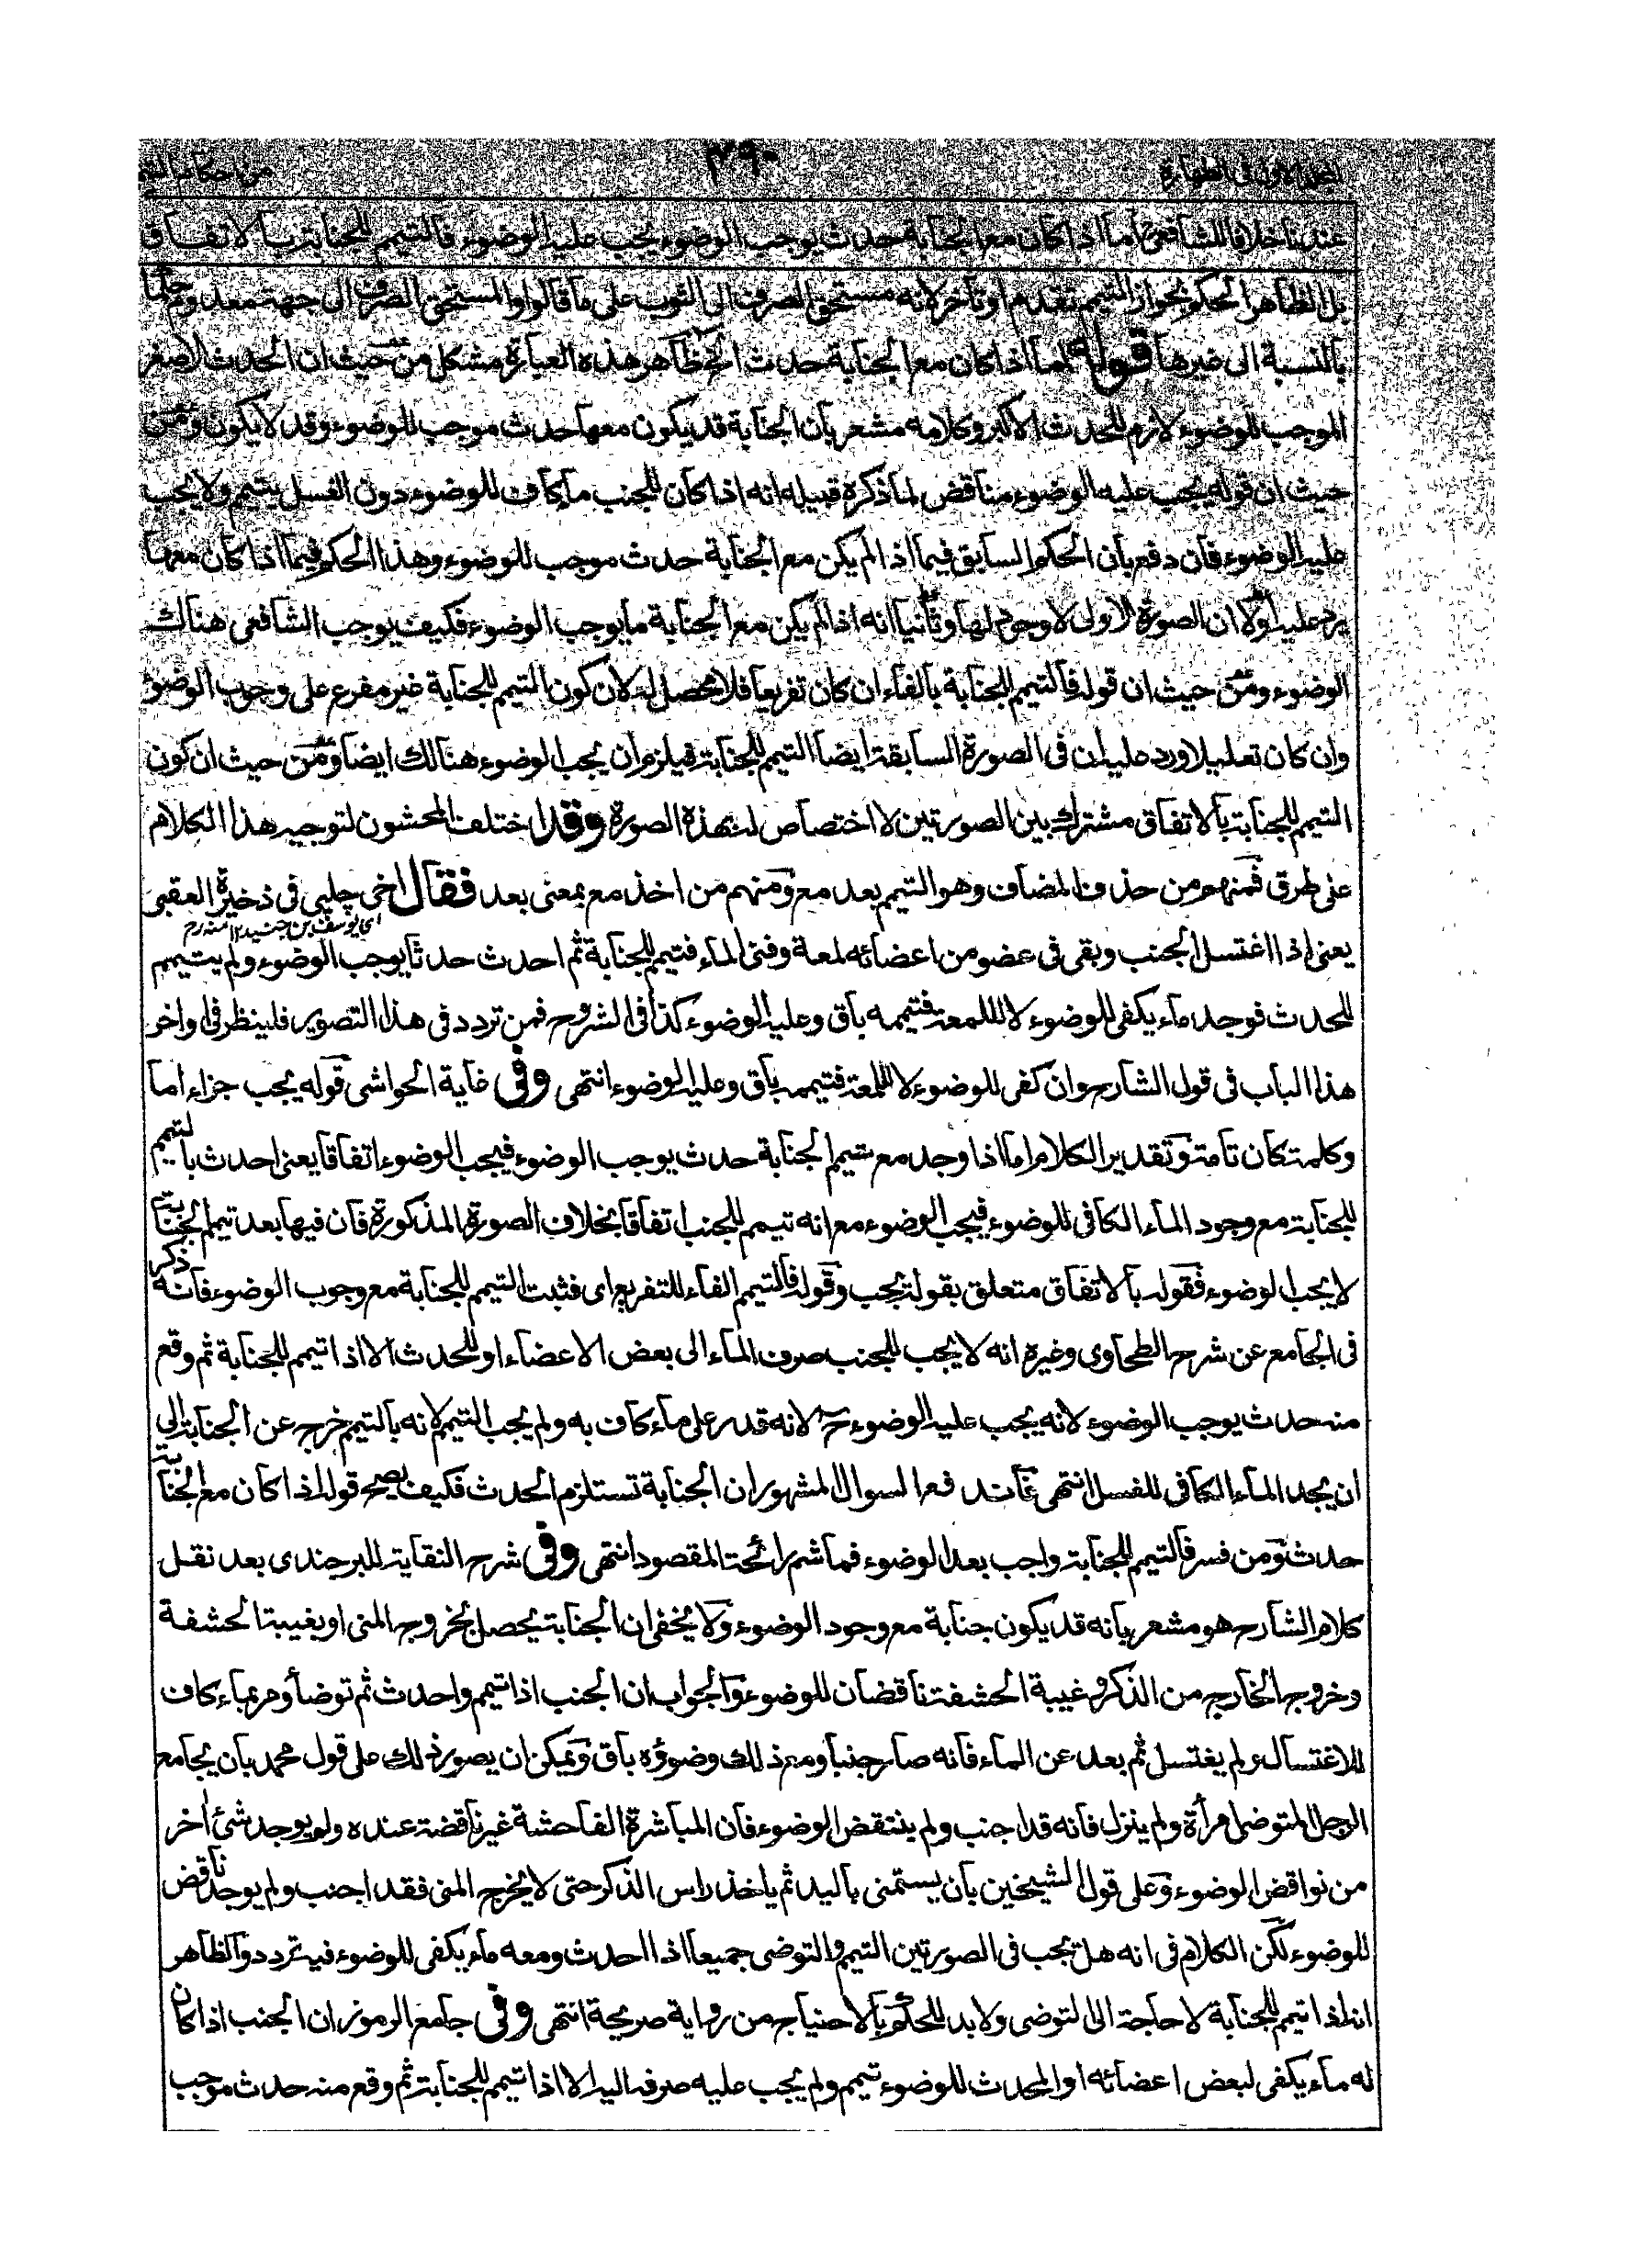 المجلد الاول فى الطهارة ٤٩٠ من احكام التيمم
عندنا خلافا للشافعى اما اذا كان مع الجنابة حدث يوجب الوضوء يجب عليه الوضوء فالتيمم للجنابة بالاتفاق
بل الظاهر الحكم بجواز التيمم تقدم او تأخر لانه مستحق الصرف الى الثوب على ما قالوا والمستحق الصرف الى جهة معدوم حكما
بالنسبة الى غيرها قوله اما اذا كان مع الجنابة حدث الخ ظاهر هذه العبارة مشكل من حيث ان الحدث الاصغر
الموجب للوضوء لازم للحدث الاكبر وكلامه مشعر بان الجنابة قد يكون معها حدث موجب للوضوء وقد لا يكون ومن
حيث ان قوله يجب عليه الوضوء مناقض لما ذكره قبيله انه اذا كان للجنب ماء كاف للوضوء دون الغسل يتيمم ولا يجب
عليه الوضوء فان دفع بان الحكم السابق فيما اذا لم يكن مع الجنابة حدث موجب للوضوء وهذا الحكم فيما اذا كان معها
يرد عليه اولا ان الصورة الاولى لا وجود لها وثانيا انه اذا لم يكن مع الجنابة ما يوجب الوضوء فكيف يوجب الشافعى هناك
الوضوء ومن حيث ان قوله فالتيمم للجنابة بالفاء ان كان تفريعا فلا محصل له لان كون التيمم للجنابة غير مفرع على وجوب الوضوء
وان كان تعليلا ورد عليه ان فى الصورة السابقة ايضا التيمم للجنابة فيلزم ان يجب الوضوء هنالك ايضا ومن حيث ان كون
التيمم للجنابة بالاتفاق مشترك بين الصورتين لا اختصاص له بهذه الصورة وقد اختلف المحشون لتوجيه هذا الكلام
على طرق فمنهم من حذف المضاف وهو التيمم بعد مع ومنهم من اخذ مع بمعنى بعد فقال اخى چلپى فى ذخيرة العقبى
اى يوسف بن جنيد ١٢ منه رح
يعنى اذا اغتسل الجنب وبقى فى عضو من اعضائه لمعة وفنى الماء فتيمم للجنابة ثم احدث حدثا يوجب الوضوء ولم يتيمم
للحدث فوجد ماء يكفى للوضوء لا للمعة فتيممه باق وعليه الوضوء كذا فى الشروح فمن تردد فى هذا التصوير فلينظر فى اواخر
هذا الباب فى قول الشارح وان كفى للوضوء لا للمعة فتيممه باق وعليه الوضوء انتهى وفى غاية الحواشى قوله يجب جزاء اما
وكلمة كان تامة وتقدير الكلام اما اذا وجد مع تيمم الجنابة حدث يوجب الوضوء فيجب الوضوء اتفاقا يعنى احدث بالتيمم
للجنابة مع وجود الماء الكافى للوضوء فيجب الوضوء مع انه تيمم للجنب اتفاقا بخلاف الصورة المذكورة فان فيها بعد تيمم الجنابة
لا يجب الوضوء فقوله بالاتفاق متعلق بقوله يجب وقوله فالتيمم الفاء للتفريع اى فثبت التيمم للجنابة مع وجوب الوضوء فانه ذكر
فى الجامع عن شرح الطحاوى وغيره انه لا يجب للجنب صرف الماء الى بعض الاعضاء او للحدث الا اذا تيمم للجنابة ثم وقع
منه حدث يوجب الوضوء لانه يجب عليه الوضوء ح لانه قدر على ماء كاف به ولم يجب التيمم لانه بالتيمم خرج عن الجنابة الى
ان يجد الماء الكافى للغسل انتهى فاندفع السوال المشهور ان الجنابة تستلزم الحدث فكيف يصح قوله اذا كان مع الجنابة
حدث ومن فسر فالتيمم للجنابة واجب بعد الوضوء فما شم رائحة المقصود انتهى وفى شرح النقاية للبرجندى بعد نقل
كلام الشارح هو مشعر بانه قد يكون جنابة مع وجود الوضوء ولا يخفى ان الجنابة يحصل بخروج المنى او بغيبة الحشفة
وخروج الخارج من الذكر وغيبة الحشفة ناقضان للوضوء والجواب ان الجنب اذا تيمم واحدث ثم توضأ ومر بماء كاف
للاغتسال ولم يغتسل ثم بعد عن الماء فانه صار جنبا ومع ذلك وضوؤه باق ويمكن ان يصور ذلك على قول محمد بان يجامع
الرجل المتوضى امرأة ولم ينزل فانه قد اجنب ولم ينتقض الوضوء فان المباشرة الفاحشة غير ناقضة عنده ولم يوجد شئ اخر
من نواقض الوضوء وعلى قول الشيخين بان يستمنى باليد ثم ياخذ راس الذكر حتى لا يخرج المنى فقد اجنب ولم يوجد ناقض
للوضوء لكن الكلام فى انه هل يجب فى الصورتين التيمم والتوضى جميعا اذا احدث ومعه ماء يكفى للوضوء فيه تردد والظاهر
انه اذا تيمم للجنابة لا حاجة الى التوضى ولا بد للحكم بالاحتياج من رواية صريحة انتهى وفى جامع الرموز ان الجنب اذا كان
له ماء يكفى لبعض اعضائه او المحدث للوضوء تيمم ولم يجب عليه صرفه اليه الا اذا تيمم للجنابة ثم وقع منه حدث موجب